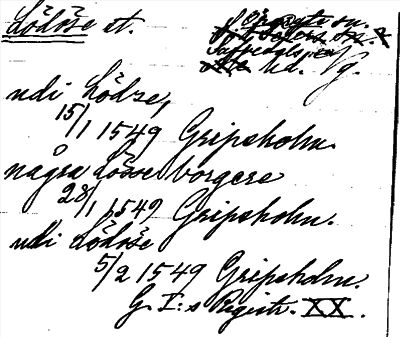 Lödöse st.
Flundre hd. Vg.
udi Lödze,
15/1 1549 Gripsholm.
några Lödse borgere
28/1 1549 Gripsholm.
udi Lödöse
5/2 1549 Gripsholm.
G. I:s Registr. XX.